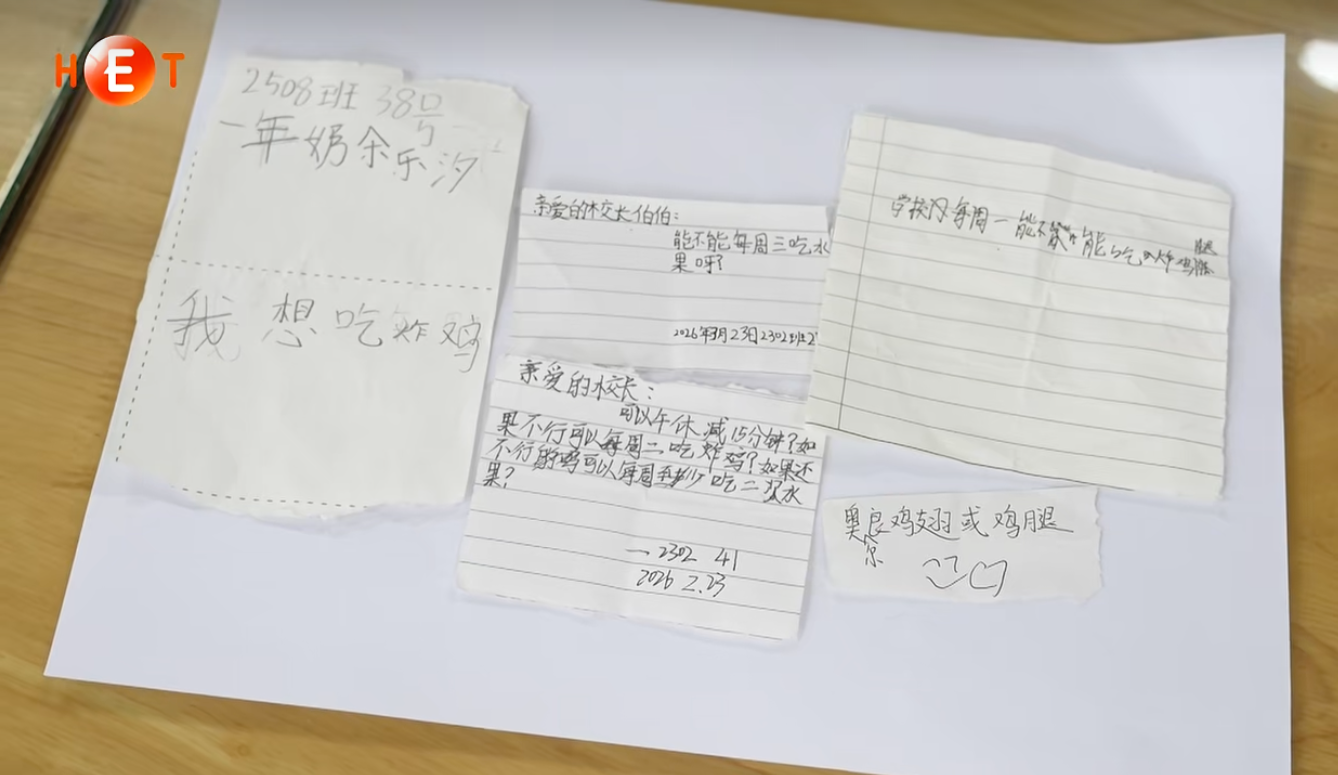 HET
2508班 38号
一年奶余乐汐
我想吃炸鸡
亲爱的校长伯伯:
能不能每周三吃水
果呀?
2026年3月23日2302班2
亲爱的校长:
可以午休减15分钟?如
果不行可以每周二吃炸鸡?如果还
不行的吗可以每周至少吃二次水
果?
一2302 41
2026 2.23
学校为每周一能不能吃炸鸡腿
奥良鸡翅或鸡腿
尔